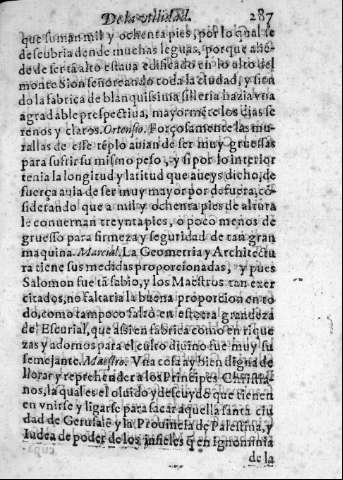 De la vtilidad. 287
que suman mil y ochenta pies, por lo qual se
descubria dende muchas leguas, porque allē
de de ser tā alto estaua edificado en lo alto del
monte Sion señoreando toda la ciudad, y sien
do la fabrica de blanquissima silleria hazia vna
agradable prespectiua, mayormēte los dias se
renos y claros. Ortensio. Forçosamente las mu
rallas de esse tēplo auian de ser muy gruessas
para sufrir su mismo peso, y si por lo interior
tenia la longitud y latitud que aueys dicho, de
fuerça auia de ser muy mayor por defuera, cō
siderando que a mil y ochenta pies de altura
le conuernan treynta pies, o poco menos de
gruesso para firmeza y seguridad de tan gran
maquina. Marcial. La Geometria y Architectu
ra tiene sus medidas proporcionadas, y pues
Salomon fue tā sabio, y los Maestros tan exer
citados, no faltaria la buena proporcion en to
do, como tampoco faltò en esotra grandeza
del Escurial, que assi en fabrica como en rique
zas y adornos para el culto diuino fue muy su
semejante. Maestro. Vna cosa ay bien digna de
llorar y reprehender a los Principes Christia-
nos, la qual es el oluido y descuydo que tienen
en vnirse y ligarse para sacar aquella santa ciu
dad de Gerusalē y la Prouincia de Palestina, y
Iudea de poder de los infieles q̄ en Ignominia
de la